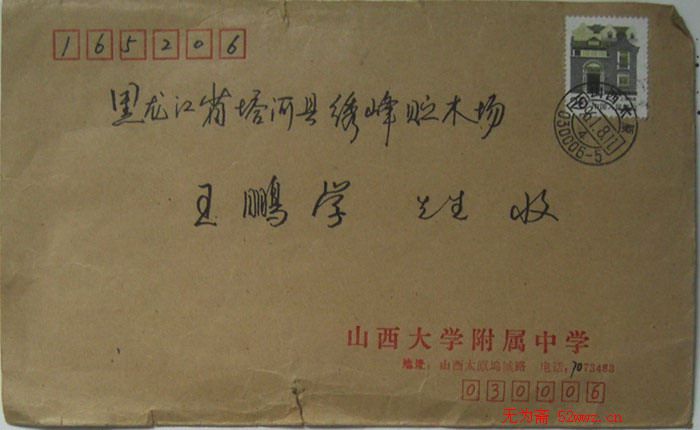 165206
黑龙江省塔河县绣峰贮木场
王鹏学 先生 收
山西太原
98.8.11
4
030006-5
山西大学附属中学
地址：山西太原坞城路 电话：7073483
030006
无为斋 52wwz.cn